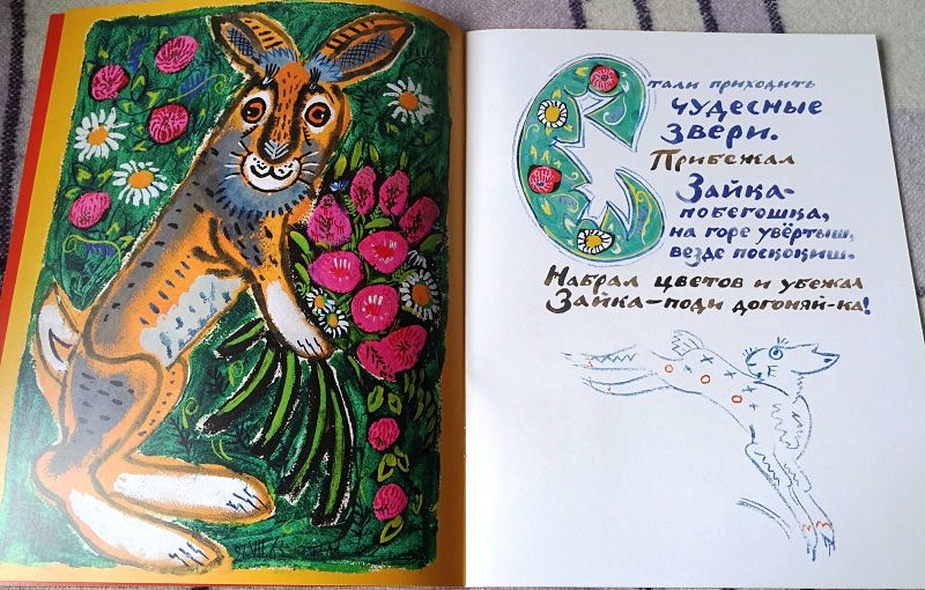 Стали приходить
чудесные
звери.
Прибежал
Зайка-
побегошка,
на горе увёртыш,
везде поскокиш.
Набрал цветов и убежал
Зайка-поди догоняй-ка!